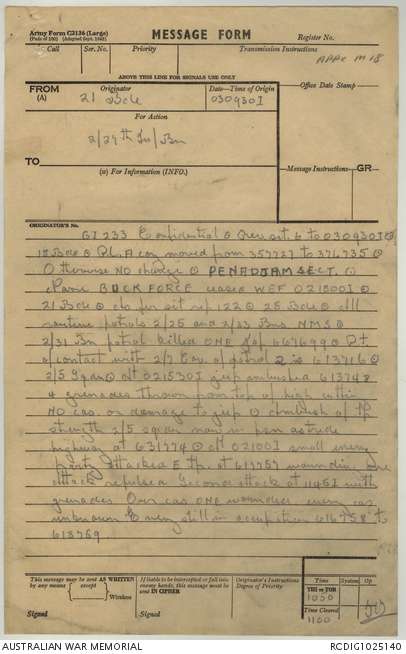 Army Form C2136 (Large)
(Pads of 100) (Adapted Sept. 1942)
MESSAGE FORM
Register No.
Call
Ser. No.
Priority
Transmission Instructions
APPX M 18
ABOVE THIS LINE FOR SIGNALS USE ONLY
FROM
(A)
Originator
Date–Time of Origin
Office Date Stamp
21 Bde
030930I
For Action
2/29th Inf Bn
TO
(W) For Information (INFO.)
Message Instructions
GR
ORIGINATOR'S No.
GI 233 Confidential ⊙ sit 6 to 030930I ⊙
18 Bde ⊙ Pl. A coy moved from 357727 to 371735 ⊙
Otherwise NO change ⊙ PENADJAM SECT. ⊙
Name BUCKFORCE ceased WEF 021800I ⊙
21 Bde ⊙ per sit rep 122 ⊙ 25 Bde ⊙ All
routine patrols 2/25 and 2/33 Bns NMS ⊙
2/31 Bn patrol killed ONE 667699 ⊙ Pt
of contact with 2/7 Cav patrol 2 is 613716 ⊙
2/5 Sqn ⊙ At 021530I jeep ambushed 613748
4 grenades thrown from top of high cutting
NO cas. or damage to jeep ⊙ Ambush of TP
strength 2/5 sqn now in psn astride
highway at 631774 ⊙ At 02100I small enemy
party attacked E tp. at 617757 wounding one
attack repulsed Second attack at 1145I with
grenades Own cas ONE wounded enemy cas
unknown Enemy still in occupation 616758 to
613759
This message may be sent AS WRITTEN
by any means except
Wireless
Signed
If liable to be intercepted or fall into
enemy hands, this message must be
sent IN CIPHER
Signed
Originator's Instructions
Degree of Priority
Time
System
Op
THI or TOR
1050
Time Cleared
1100
AUSTRALIAN WAR MEMORIAL
RCDIG1025140